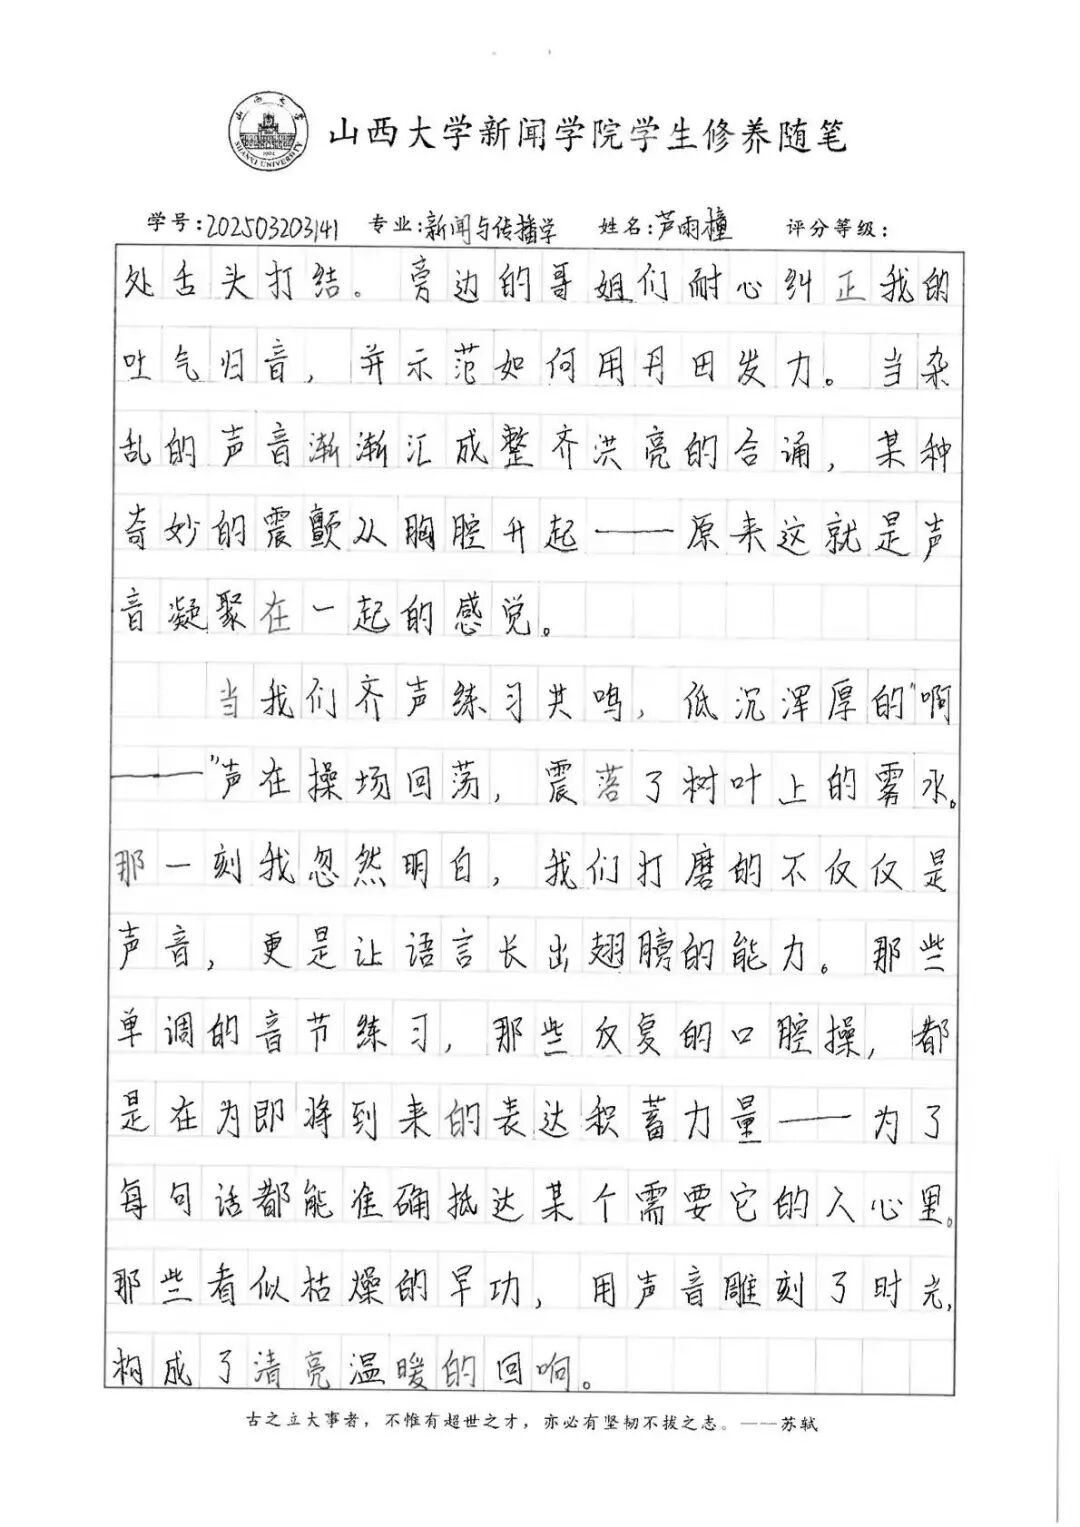 山西大学新闻学院学生修养随笔
学号:202503203141 专业:新闻与传播学 姓名:芦雨橦 评分等级:
处舌头打结。旁边的哥姐们耐心纠正我的
吐气归音,并示范如何用丹田发力。当杂
乱的声音渐渐汇成整齐洪亮的合诵,某种
奇妙的震颤从胸腔升起——原来这就是声
音凝聚在一起的感觉。
当我们齐声练习共鸣,低沉浑厚的"啊
——"声在操场回荡,震落了树叶上的雾水。
那一刻我忽然明白,我们打磨的不仅仅是
声音,更是让语言长出翅膀的能力。那些
单调的音节练习,那些反复的口腔操,都
是在为即将到来的表达积蓄力量——为了
每句话都能准确抵达某个需要它的人心里。
那些看似枯燥的早功,用声音雕刻了时光,
构成了清亮温暖的回响。
古之立大事者,不惟有超世之才,亦必有坚韧不拔之志。——苏轼